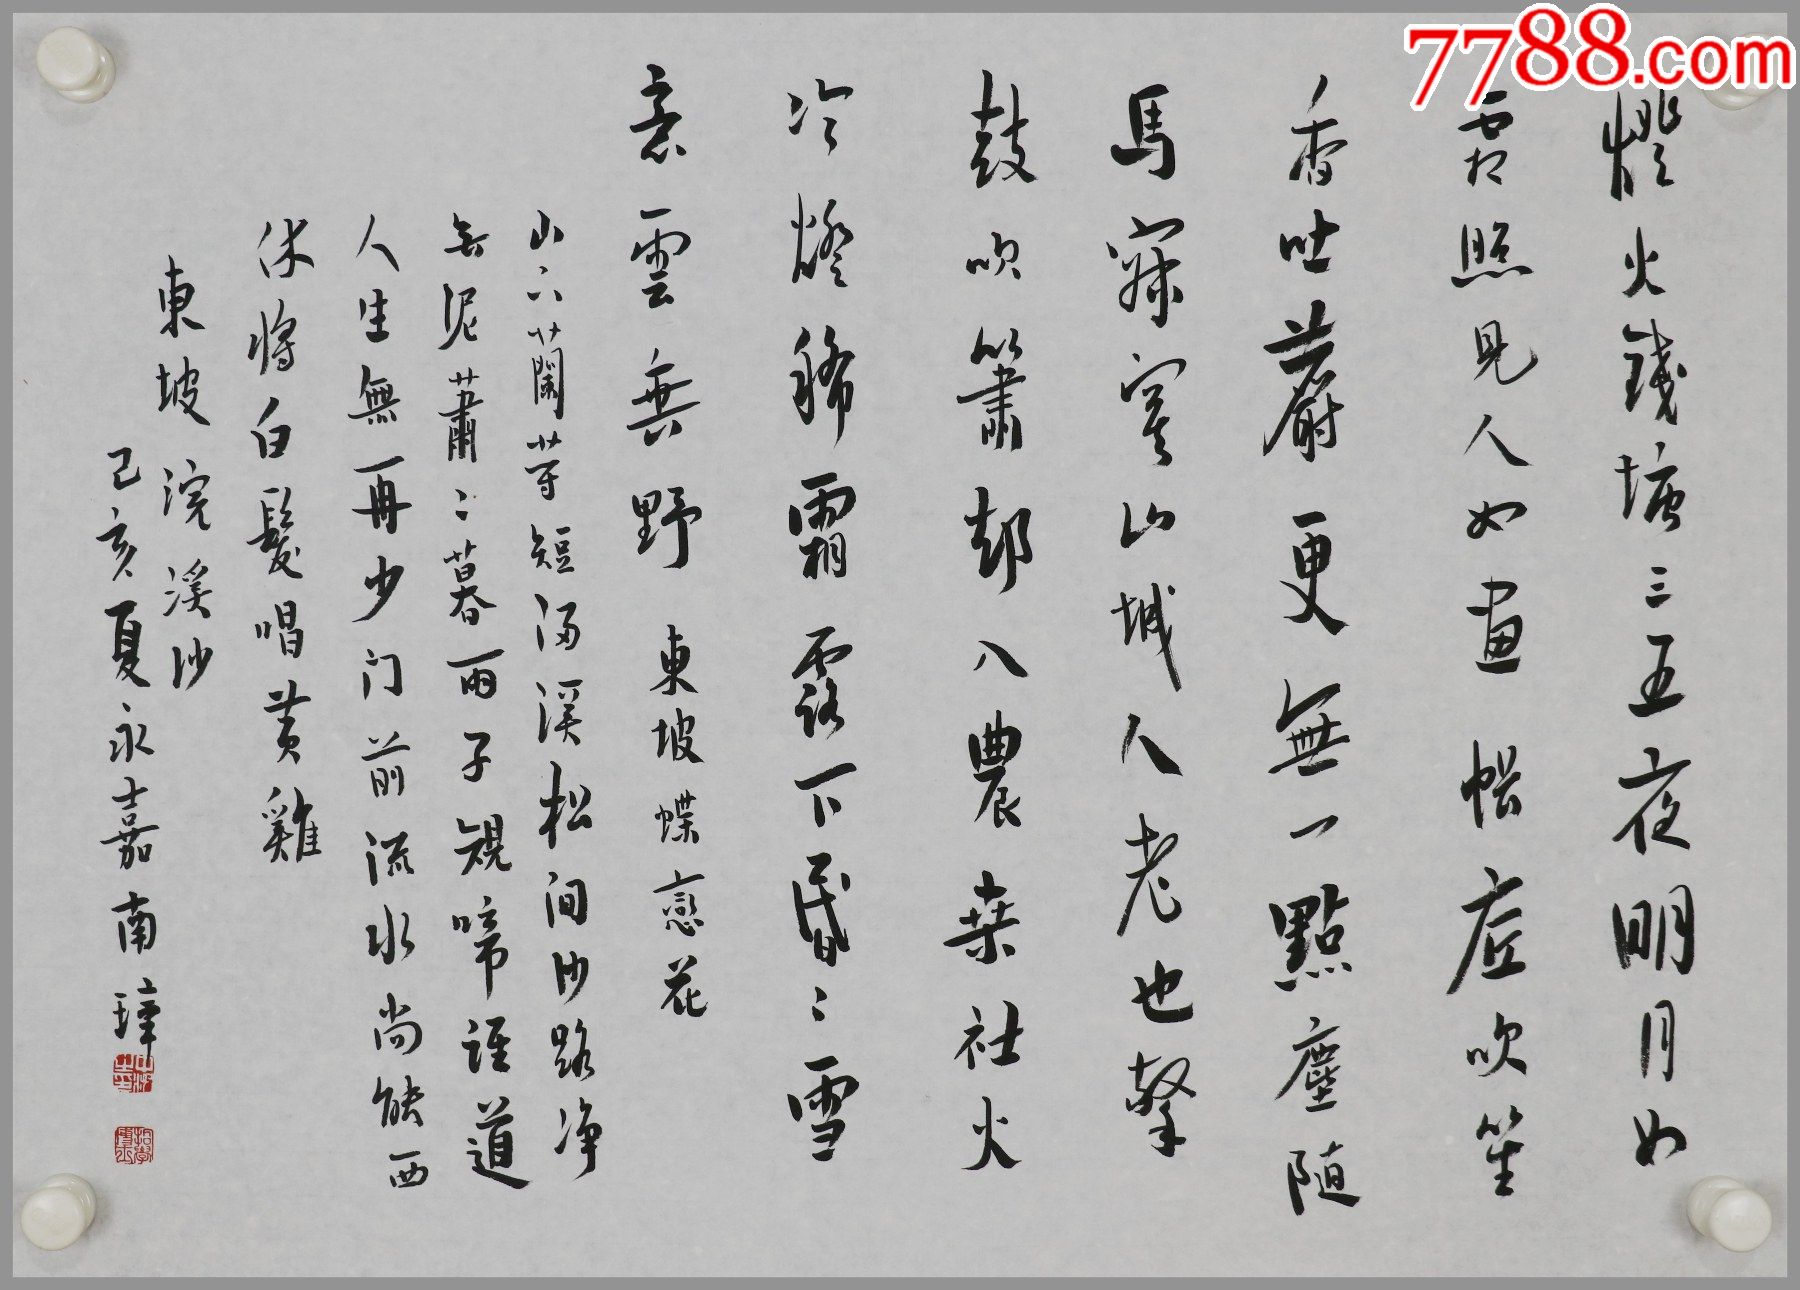 7788.com
燈火錢塘三五夜明月如
霜照見人如畫帳底吹笙
香吐麝更無一點塵隨
馬寂寞山城人老也擊
鼓吹簫却入農桑社火
冷燈稀霜露下昏〻雪
意雲垂野 東坡蝶戀花
山下蘭芽短浸溪松间沙路净
無泥蕭〻暮雨子規啼誰道
人生無再少门前流水尚能西
休將白髮唱黄雞
東坡浣溪沙
己亥夏永嘉南瑋